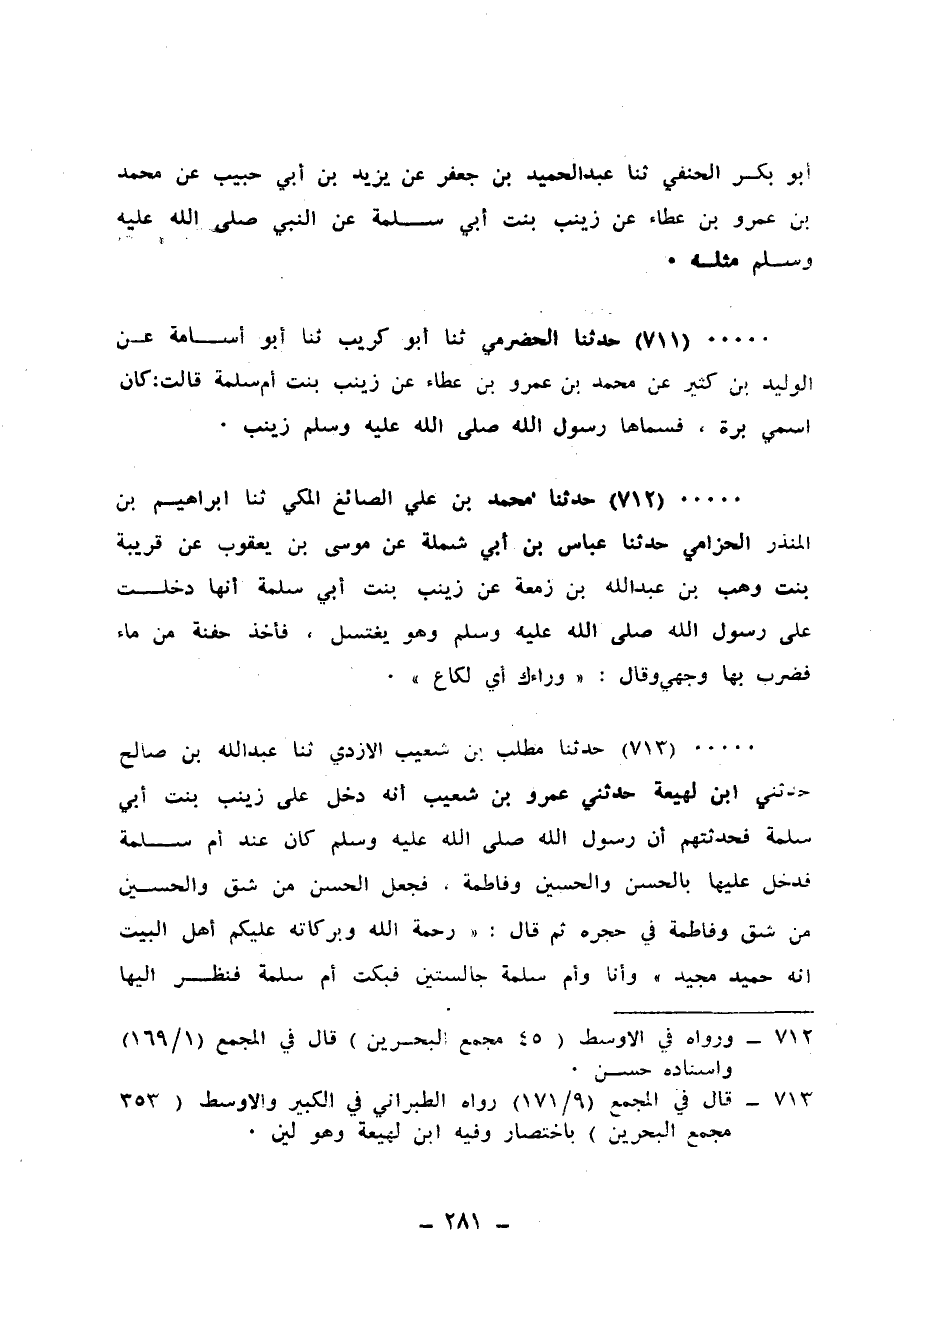 أبو بكـر الحنفي ثنا عبدالحميد بن جعفر عن يزيد بن أبي حبيب عن محمد
بن عمرو بن عطاء عن زينب بنت أبي ســـلمة عن النبي صلى الله عليه
وســلم مثلــه ٠
٠٠٠٠٠ (٧١١) حدثنا الحضرمي ثنا أبو كريب ثنا أبو أســـامة عــن
الوليد بن كثير عن محمد بن عمرو بن عطاء عن زينب بنت أم سلمة قالت:كان
اسمي برة ، فسماها رسول الله صلى الله عليه وسلم زينب ٠
٠٠٠٠٠ (٧١٢) حدثنا محمد بن علي الصائغ المكي ثنا ابراهيــم بن
المنذر الحزامي حدثنا عباس بن أبي شملة عن موسى بن يعقوب عن قريبة
بنت وهب بن عبدالله بن زمعة عن زينب بنت أبي سلمة أنها دخلـــت
على رسول الله صلى الله عليه وسلم وهو يغتسل ، فأخذ حفنة من ماء
فضرب بها وجهي وقال : « وراءك أي لكاع » ٠
٠٠٠٠٠ (٧١٣) حدثنا مطلب بن شعيب الازدي ثنا عبدالله بن صالح
حدثني ابن لهيعة حدثني عمرو بن شعيب أنه دخل على زينب بنت أبي
سلمة فحدثتهم أن رسول الله صلى الله عليه وسلم كان عند أم ســـلمة
فدخل عليها بالحسن والحسين وفاطمة ، فجعل الحسن من شق والحســـين
من شق وفاطمة في حجره ثم قال : « رحمة الله وبركاته عليكم أهل البيت
انه حميد مجيد » وأنا وأم سلمة جالستين فبكت أم سلمة فنظـــر اليها
٧١٢ ــ ورواه في الاوسط ( ٤٥ مجمع البحـرين ) قال في المجمع (١٦٩/١)
واسناده حســن ٠
٧١٣ ــ قال في المجمع (١٧١/٩) رواه الطبراني في الكبير والاوسط ( ٣٥٣
مجمع البحرين ) باختصار وفيه ابن لهيعة وهو لين ٠
ــ ٢٨١ ــ